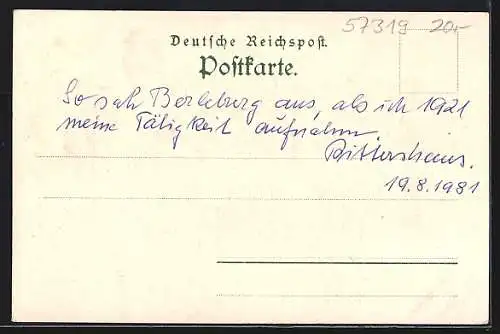 57319 20,-
Deutsche Reichspost.
Postkarte.
So sah Berleburg aus, als ich 1921
meine Tätigkeit aufnahm.
Rittershaus.
19.8.1981